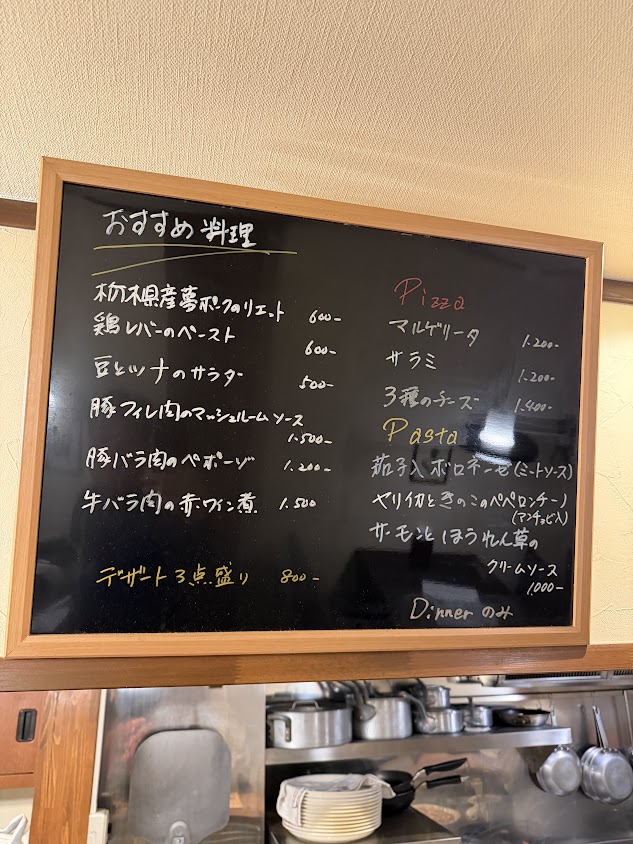 おすすめ料理
栃木県産夢ポークのリエット 600-
鶏レバーのペースト 600-
豆とツナのサラダ 500-
豚フィレ肉のマッシュルームソース
1.500-
豚バラ肉のペポーゾ 1.200-
牛バラ肉の赤ワイン煮 1.500
デザート3点盛り 800-
Pizza
マルゲリータ 1.200-
サラミ 1.200-
3種のチーズ 1.400-
Pasta
茄子入ボロネーゼ(ミートソース)
ヤリイカときのこのペペロンチーノ
(アンチョビ入)
サーモンとほうれん草の
クリームソース
1,000-
Dinnerのみ